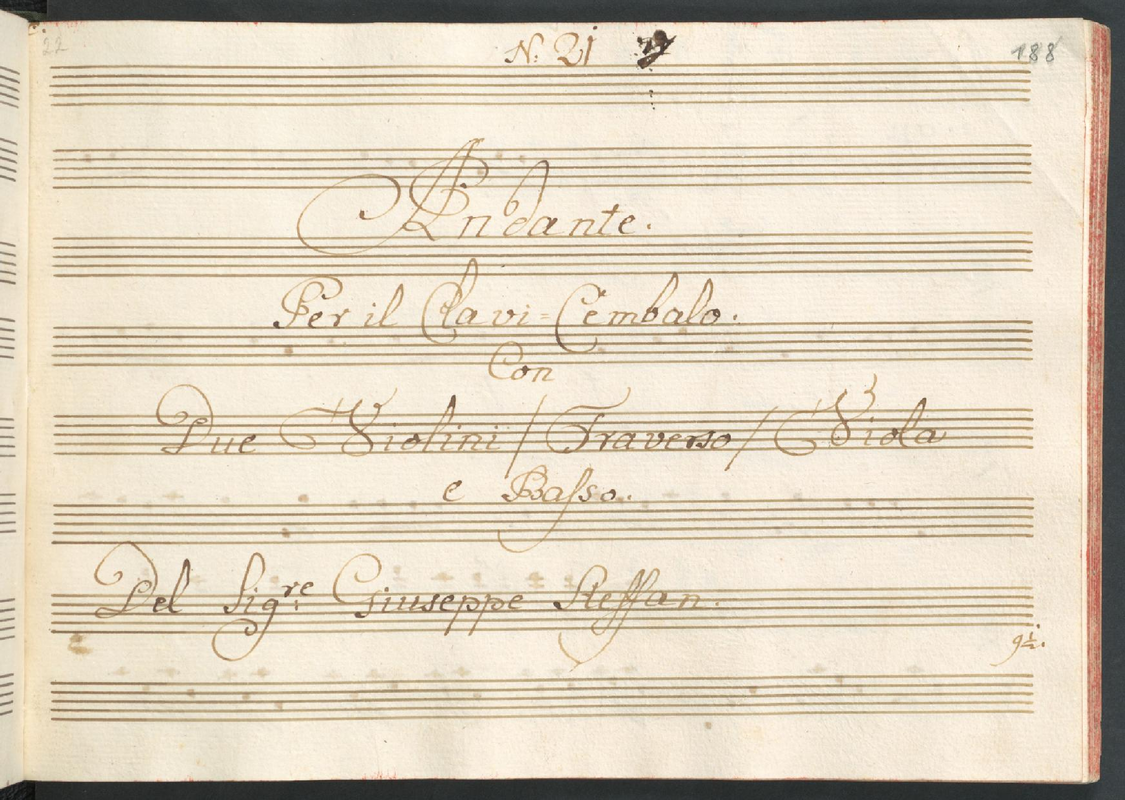 22
N. 21
188
Andante.
Per il Clavi=Cembalo.
Con
Due Violini / Traverso / Viola
e Basso.
Del Sig.re Giuseppe Steffan.
9½.